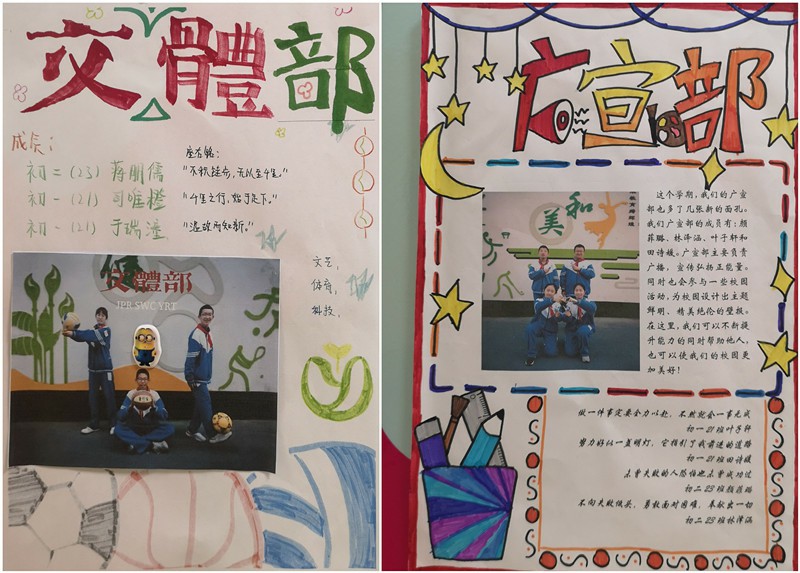 文體部
成员：
初二（23）蒋朋儒
初一（21）司唯橙
初一（21）于瑞潼
座右铭：
“不积跬步，无以至千里。”
“千里之行，始于足下。”
“温故而知新。”
文體部
JPR SWC YRT
文艺，
体育，
科技，
广宣部
美 和
这个学期，我们的广宣
部也多了几张新的面孔。
我们广宣部的成员有：颜
菲璐、林泽涵、叶子轩和
田诗媛。广宣部主要负责
广播，宣传弘扬正能量。
同时也会参与一些校园
活动，为校园设计出主题
鲜明、精美绝伦的壁报。
在这里，我们可以不断提
升能力的同时帮助他人，
也可以使我们的校园更
加美好！
做一件事定要全力以赴，不然就会一事无成
初一21班叶子轩
努力好似一盏明灯，它指引了我前进的道路
初一21班田诗媛
未曾失败的人恐怕也未曾成功过
初二23班颜菲璐
不向失败低头，勇敢面对困难，奉献出一切
初二23班林泽涵